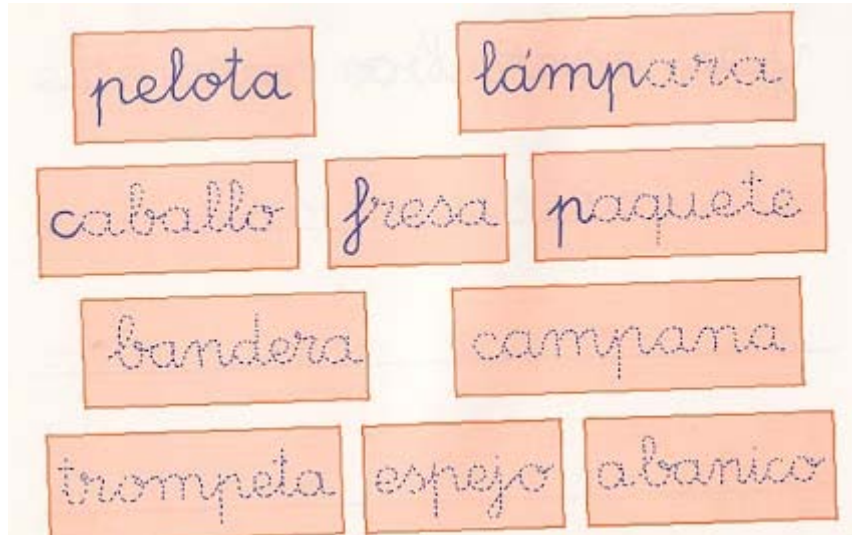 pelota lámpara
caballo fresa paquete
bandera campana
trompeta espejo abanico